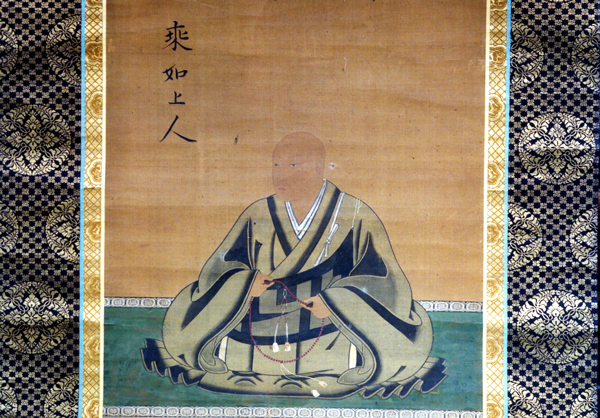 乘如上人